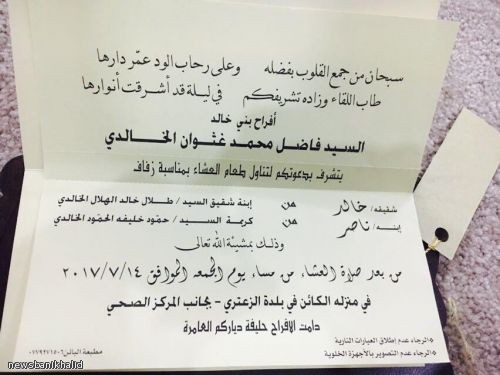 سبحان من جمع القلوب بفضله وعلى رحاب الود عمّر دارها
طاب اللقاء وزاده تشريفكم في ليلة قد أشرقت أنوارها
أفراح بني خالد
السيد فاضل محمد غثوان الخالدي
يتشرف بدعوتكم لتناول طعام العشاء بمناسبة زفاف
شقيقه / خالد من إبنة شقيق السيد / طلال خالد الهلال الخالدي
إبنه / ناصر من كريمة الســـيد / حمّود خليفه الحمّود الخالدي
وذلك بمشيئة الله تعالى
من بعد صلاة العشاء من مساء يوم الجمعه الموافق ٢٠١٧/٧/١٤
في منزله الكائن في بلدة الزعتري - بجانب المركز الصحي
دامت الافراح حليفة دياركم العامرة
* الرجاء عدم إطلاق العيارات النارية
* الرجاء عدم التصوير بالأجهزة الخلوية
newsbanikhalid